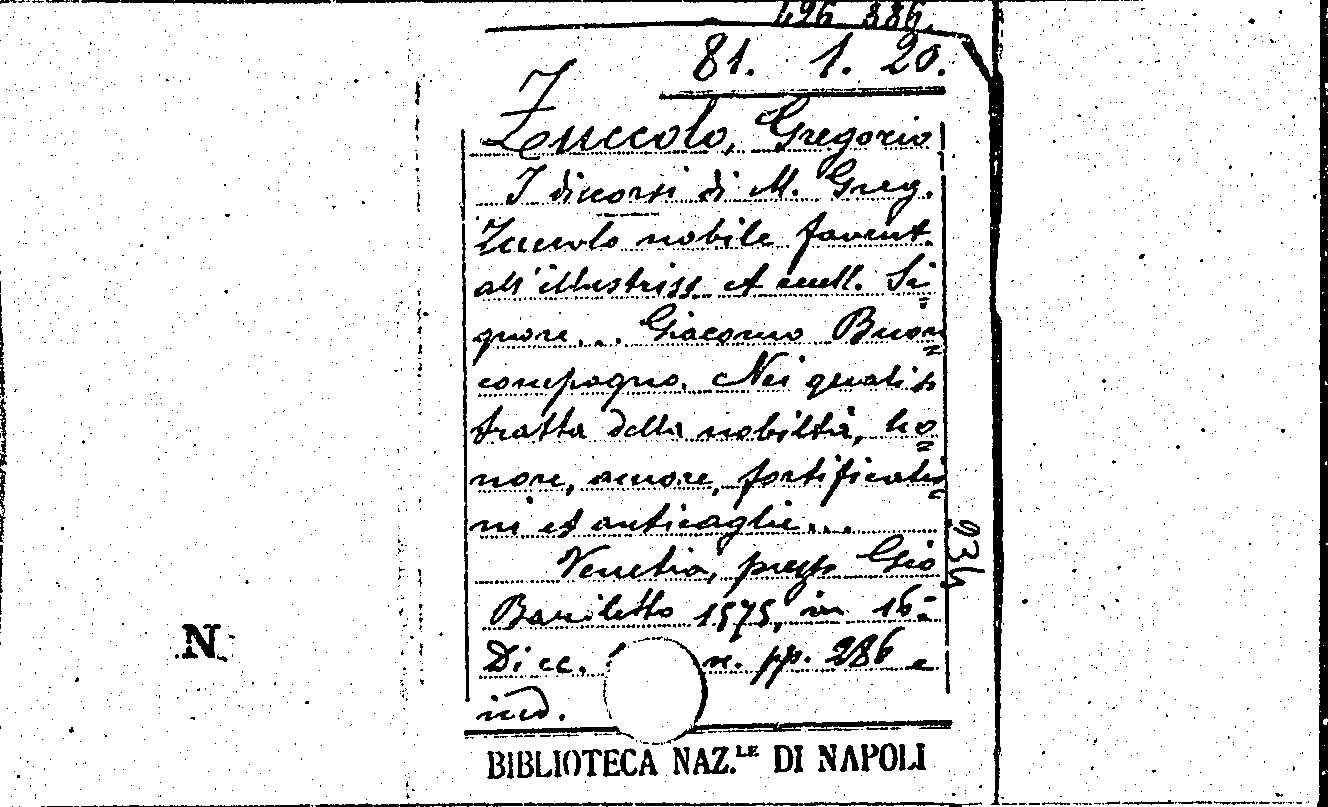 496 886.
81. 1. 20.
Z
Zuccolo, Gregorio
I discorsi di M. Greg.
Zuccolo nobile favent.
all'illustriss. et eccell. Si
gnore... Giacomo Buon
compagno. Nei quali si
tratta della nobiltà, ho
nore, amore, fortificatio
ni et anticaglie...
Venetia, presso Gio
Bariletto 1575, in 16°
Di cc. n. pp. 286 e
ind.
934
N
BIBLIOTECA NAZ.LE DI NAPOLI